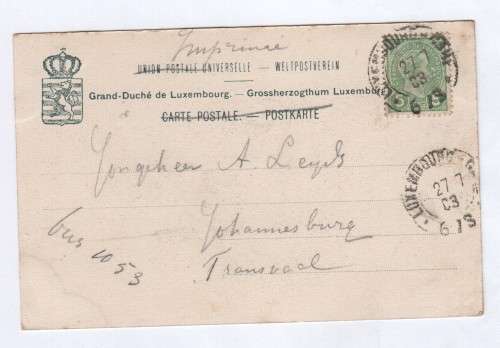 Imprimé
UNION POSTALE UNIVERSELLE – WELTPOSTVEREIN
Grand-Duché de Luxembourg. – Grossherzogthum Luxemburg
CARTE POSTALE. – POSTKARTE
Jongheer A. Leyds
Johannesburg
Transvaal
Bus 1053
LUXEMBOURG
27
03
6 1S
5
LUXEMBOURG
27 7
03
6 1S